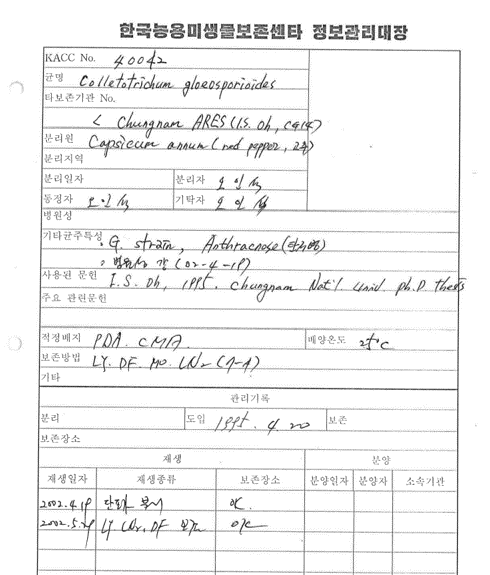 한국농용미생물보존센타 정보관리대장
KACC No. 40042
균명 Colletotrichum gloeosporioides
타보존기관 No.
< Chungnam ARES (I.S. Oh, C914)
분리원 Capsicum annum (red pepper, 고추)
분리지역
분리일자 분리자 오인석
동정자 오인석 기탁자 오인석
병원성
기타균주특성 : G. strain, Anthracnose (탄저병)
: 병원성 강 (02-4-19)
사용된 문헌 I.S. Oh, 1995. Chungnam Nat'l. Univ. ph.D thesis
주요 관련문헌
적정배지 PDA. CMA. 배양온도 25°C
보존방법 LY. DF. MO. LN2 (1-1)
기타
관리기록
분리 도입 1995. 4. 20 보존
보존장소
재생 분양
재생일자 재생종류 보존장소 분양일자 분양자 소속기관
2002.4.19 단포 분리 OK
LY, LN2, DF 보존 OK